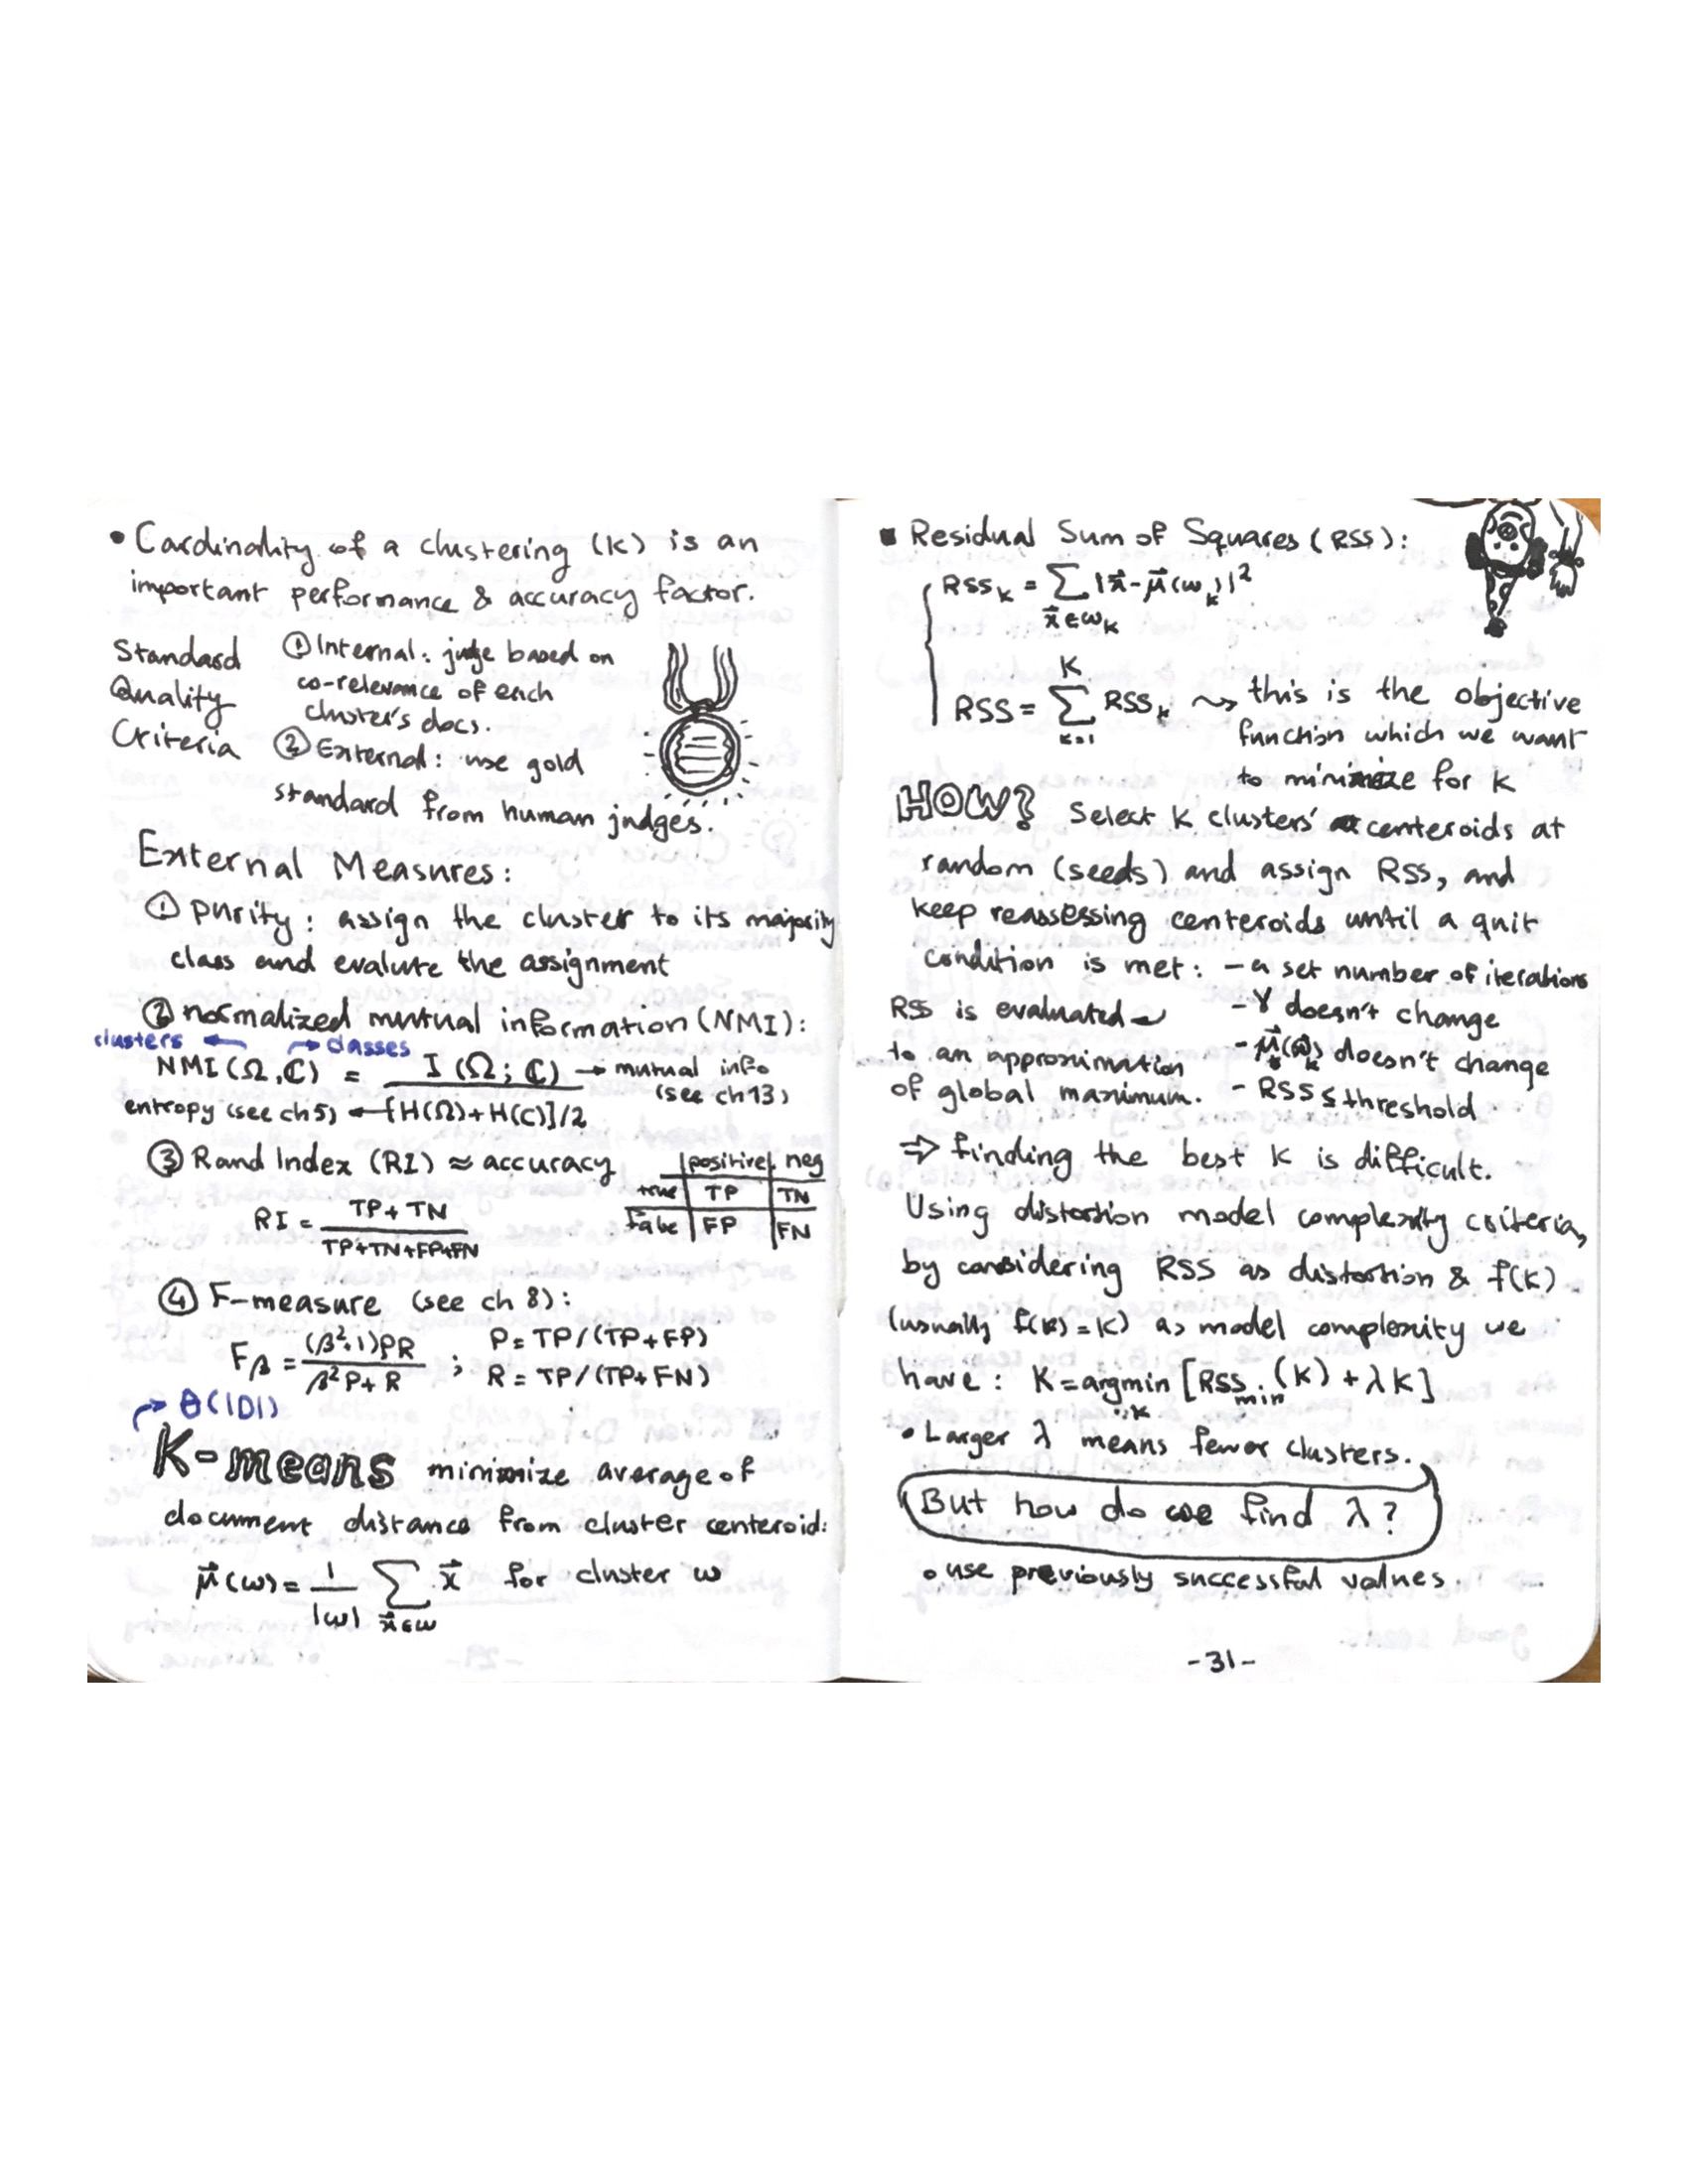 • Cardinality of a clustering (K) is an
important performance & accuracy factor.
Standard
Quality
Criteria
① Internal: judge based on
co-relevance of each
cluster's docs.
② External: use gold
standard from human judges.
External Measures:
① purity: assign the cluster to its majority
class and evalute the assignment
② normalized mutual information (NMI):
clusters ← → classes
NMI(Ω,ℂ) = I(Ω;ℂ) → mutual info
(see ch 13)
entropy (see ch5) ← [H(Ω)+H(C)]/2
③ Rand Index (RI) ≈ accuracy
positive neg
true TP TN
false FP FN
RI = TP+TN
TP+TN+FP+FN
④ F-measure (see ch 8):
Fβ = (β²+1)PR / β²P+R ;
P = TP/(TP+FP)
R = TP/(TP+FN)
→ θ(|D|)
K-means minimize average of
document distance from cluster centeroid:
μ⃗(ω) = 1/|ω| ∑ x⃗ for cluster ω
x⃗∈ω
▪ Residual Sum of Squares (RSS):
RSSₖ = ∑ |x⃗-μ⃗(ωₖ)|²
x⃗∈ωₖ
K
RSS = ∑ RSSₖ ⇝ this is the objective
k=1
function which we want
to minimize for K
HOW? Select K clusters' centeroids at
random (seeds) and assign RSS, and
keep reassessing centeroids until a quit
condition is met: - a set number of iterations
- γ doesn't change
- μ⃗(ωₖ) doesn't change
- RSS ≤ threshold
RSS is evaluated
to an approximation
of global maximum.
⇒ finding the best K is difficult.
Using distortion model complexity criteria,
by considering RSS as distortion & f(K)
(usually f(K)=K) as model complexity we
have: K = argmin [RSS min (K) + λK]
K
• Larger λ means fewer clusters.
But how do we find λ?
∘ use previously successful values.
-31-